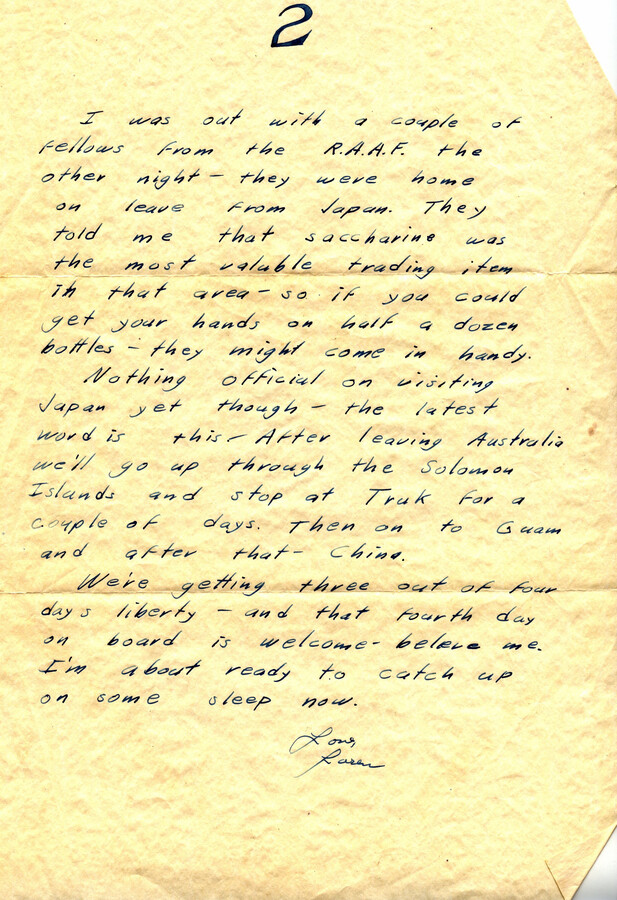 2
I was out with a couple of
fellows from the R.A.A.F. the
other night - they were home
on leave from Japan. They
told me that saccharine was
the most valuable trading item
in that area - so if you could
get your hands on half a dozen
bottles - they might come in handy.
Nothing official on visiting
Japan yet though - the latest
word is this - After leaving Australia
we'll go up through the Solomon
Islands and stop at Truk for a
couple of days. Then on to Guam
and after that - China.
We're getting three out of four
days liberty - and that fourth day
on board is welcome - beleve me.
I'm about ready to catch up
on some sleep now.
Love,